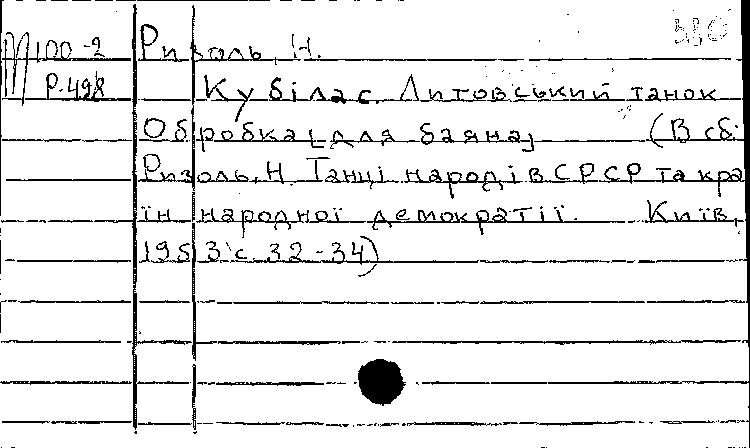 М 100-2 Ризоль, Н.
Р.498 Кубілас. Литовський танок
Обробка [для баяна] (В сб:
Ризоль, Н. Танці народів СРСР та кра
їн народної демократії. Київ,
1953 с. 32-34)